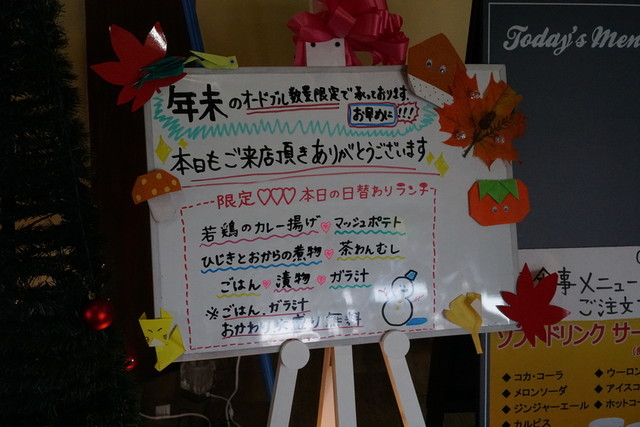 年末のオードブル数量限定で承っております
お早めに!!!
本日もご来店頂きありがとうございます
限定♡♡♡本日の日替わりランチ
若鶏のカレー揚げ♡マッシュポテト
ひじきとおからの煮物♡茶わんむし
ごはん♡漬物♡ガラ汁
※ごはん、ガラ汁
おかわり 無料
Today's Men
食事メニュー
ご注文
ソフトドリンク サー
◆コカ・コーラ
◆メロンソーダ
◆ジンジャーエール
◆カルピス
◆ウーロン
◆アイスコ
◆ホットコー